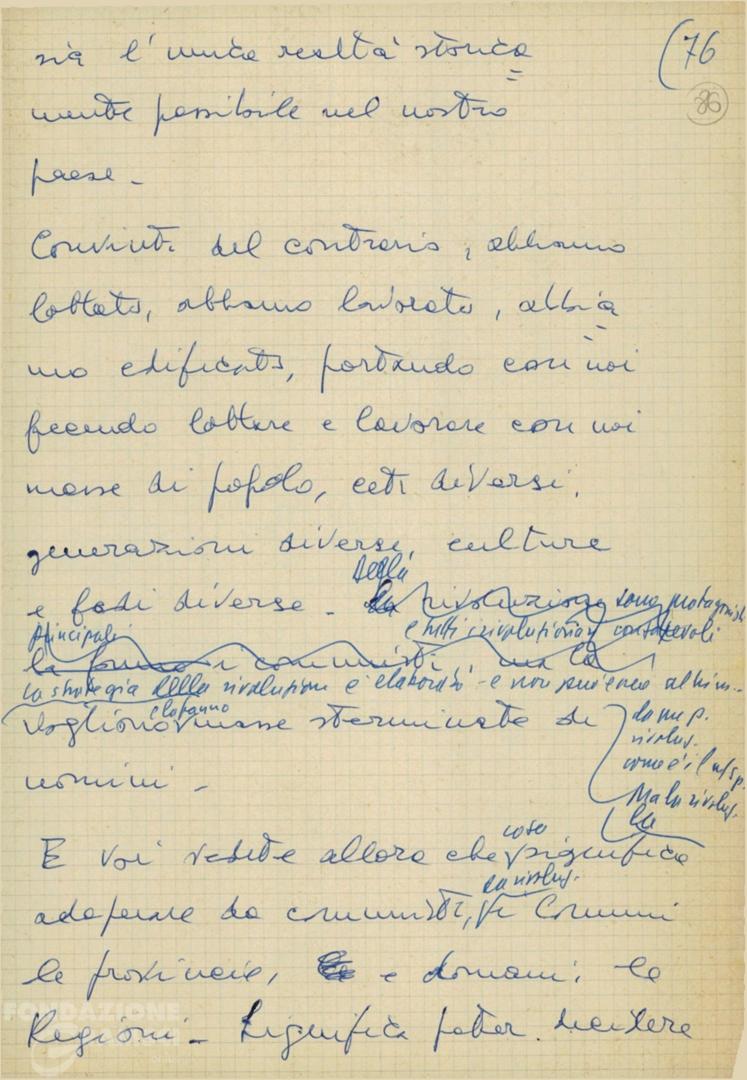 (76
86
sia l'unica realtà storica
mente possibile nel nostro
paese -
Convinti del contrario, abbiamo
lottato, abbiamo lavorato, abbia
mo edificato, portando con noi
facendo lottare e lavorare con noi
masse di popolo, ceti diversi,
generazioni diverse, culture
Della
e fedi diverse - la rivoluzione sono protagonisti
principali e tutti i rivoluzionari consapevoli
la fanno i comunisti, ma la
la strategia della rivoluzione è elaborata - e non può che
e la fanno
vogliono masse sterminate di
da un p.
rivoluz.
come è il
Ma la rivoluz.
la
uomini -
cosa
E voi vedete allora che significa
da rivoluz.
adoperare da comunisti, i Comuni
le provincie, e domani, le
Regioni - Significa poter decidere
FONDAZIONE